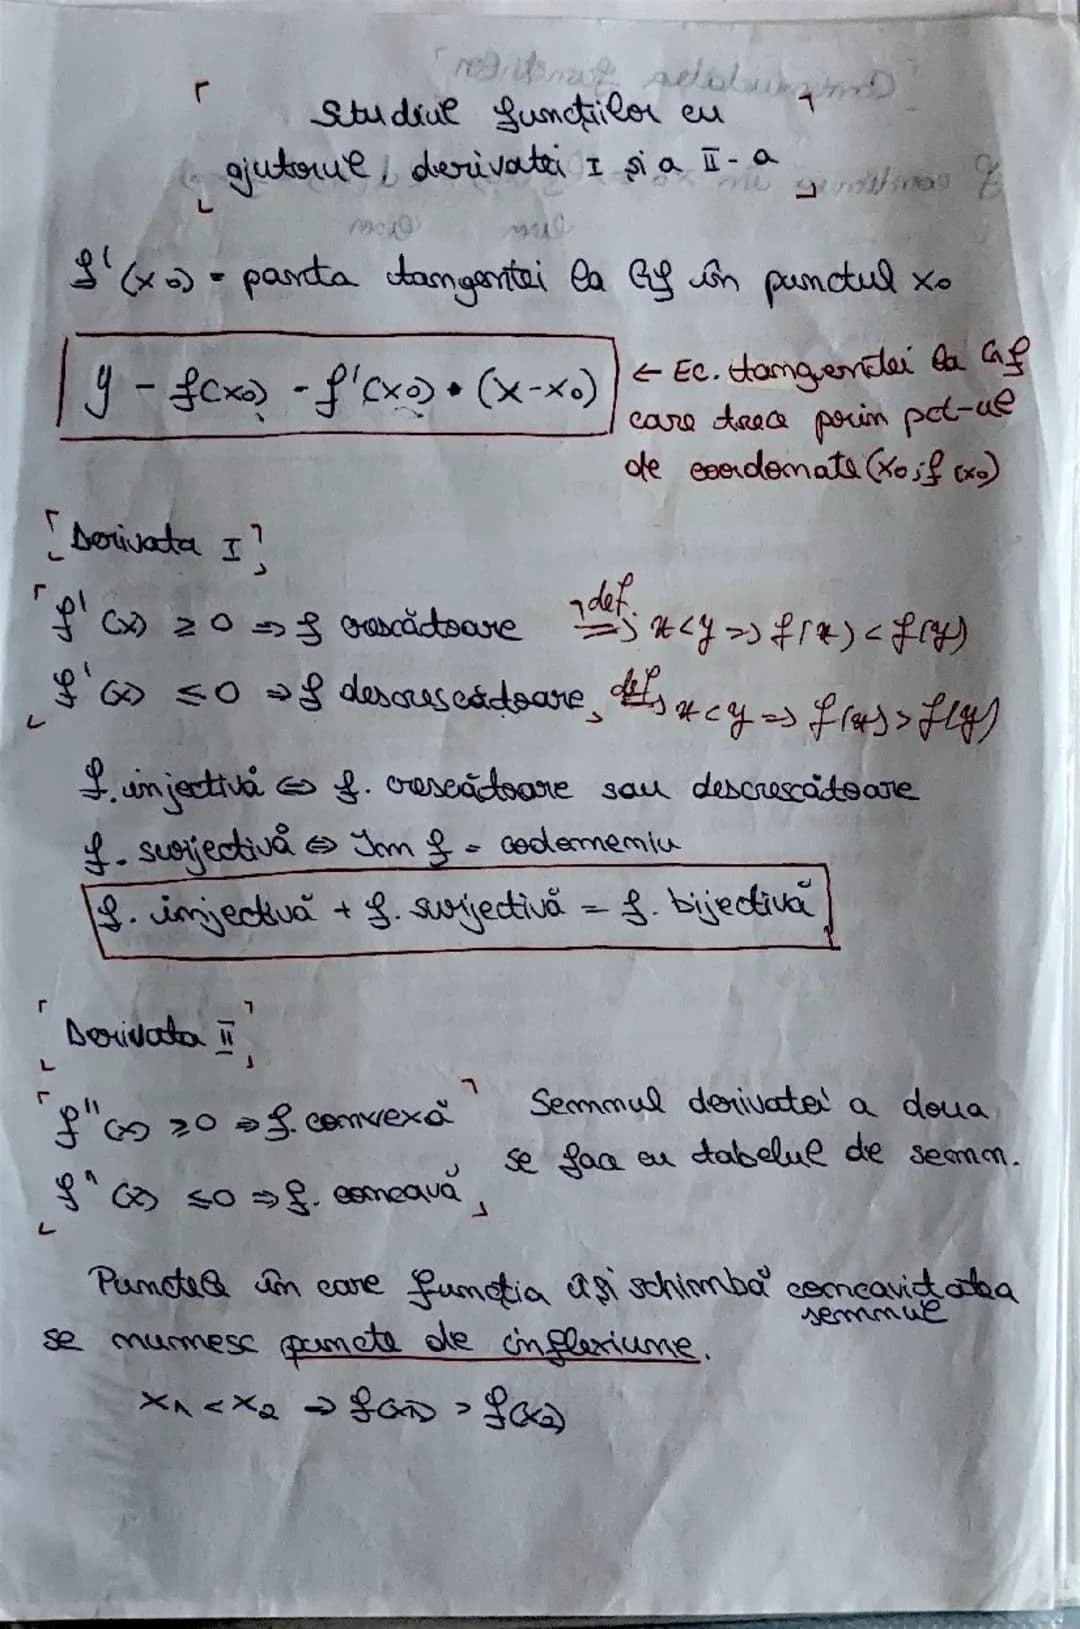 Studiul funcțiilor cu
ajutorul derivatei I și a II-a
f'(x₀) = panta tangentei la Gf în punctul x₀
y - f(x₀) - f'(x₀) • (x-x₀)
← Ec. tangentei la Gf
care trece prin pct-ul
de coordonate (x₀; f(x₀)
Derivata I
f'(x) ≥ 0 ⇒ f crescătoare def. ⇒ x<y ⇒ f(x) < f(y)
f'(x) ≤ 0 ⇒ f descrescătoare, def. ⇒ x<y ⇒ f(x) > f(y)
f. injectivă ⇔ f. crescătoare sau descrescătoare
f. surjectivă ⇔ Im f = codomeniu
f. injectivă + f. surjectivă = f. bijectivă
Derivata II
f''(x) ≥0 ⇒ f. convexă
f''(x) ≤0 ⇒ f. concavă
Semnul derivatei a doua
se face cu tabelul de semn.
Punctele în care funcția își schimbă concavitatea
semnul
se numesc puncte de inflexiune.
x₁ < x₂ ⇒ f(x₁) > f(x₂)